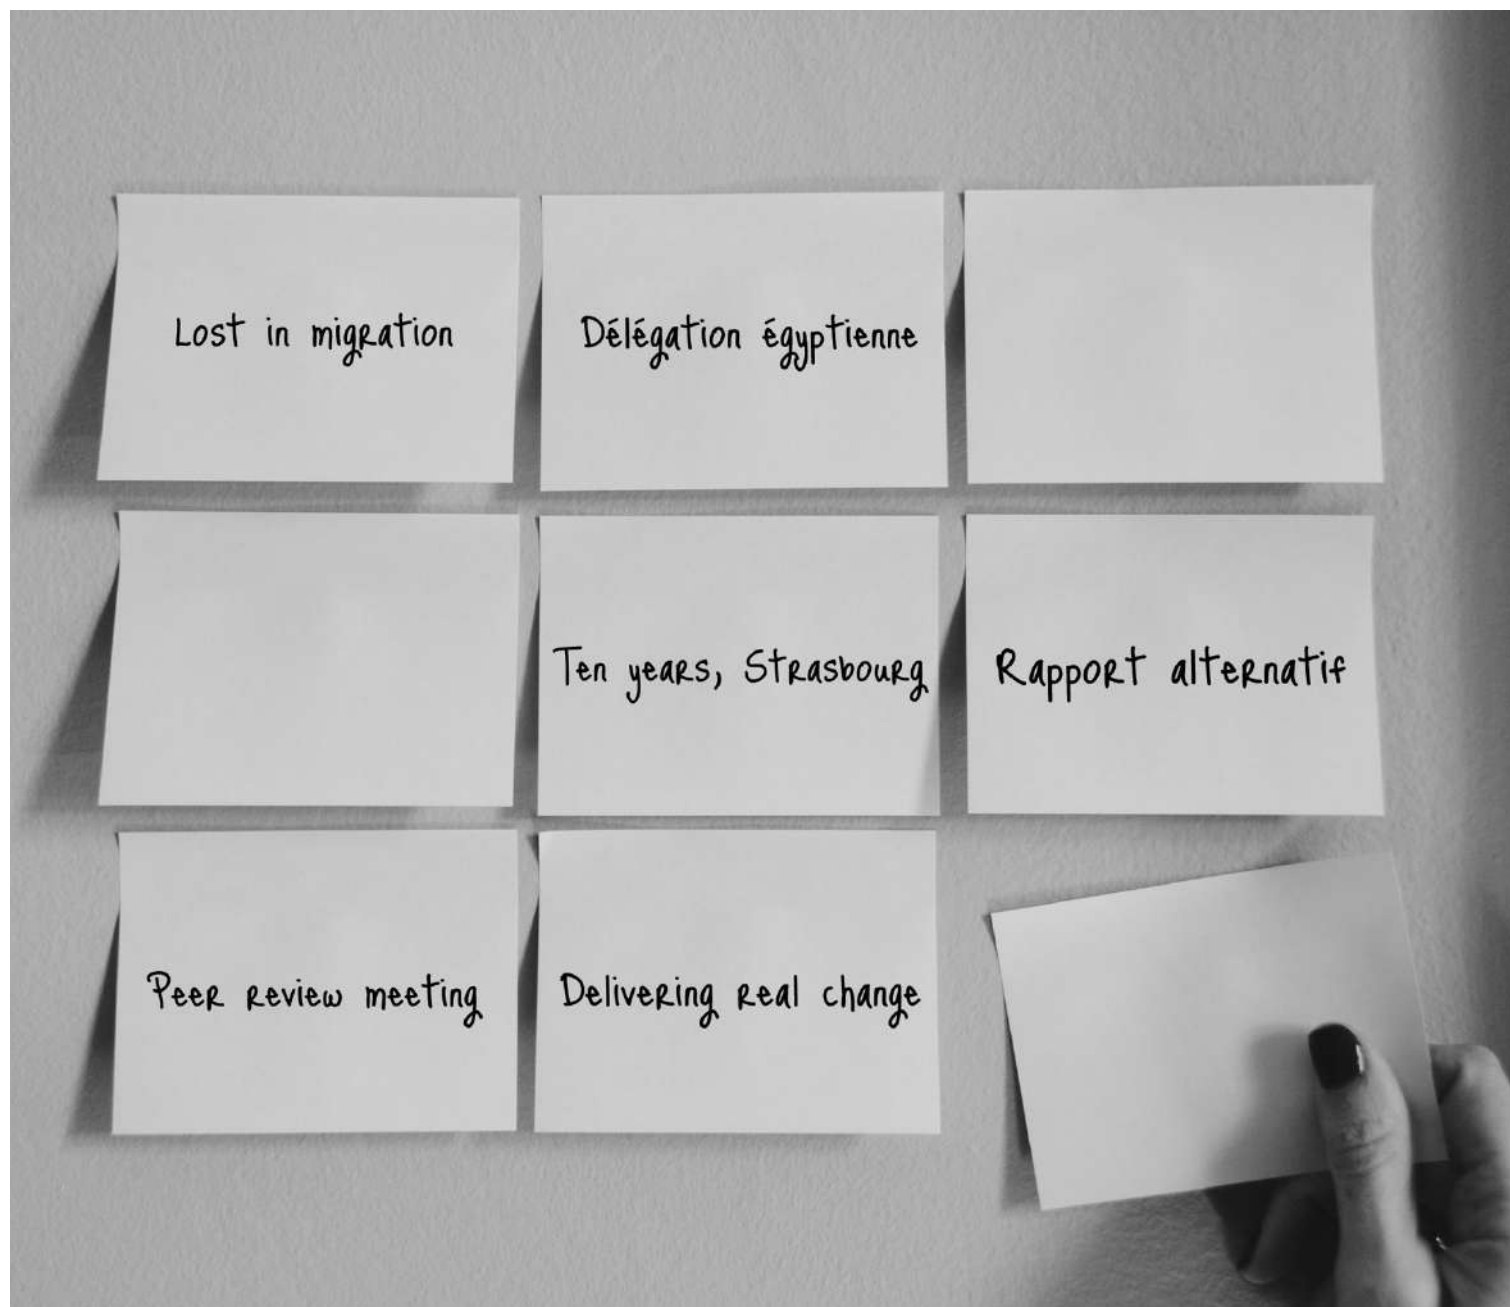 Lost in migration
Délégation égyptienne
Ten years, Strasbourg
Rapport alternatif
Peer review meeting
Delivering real change